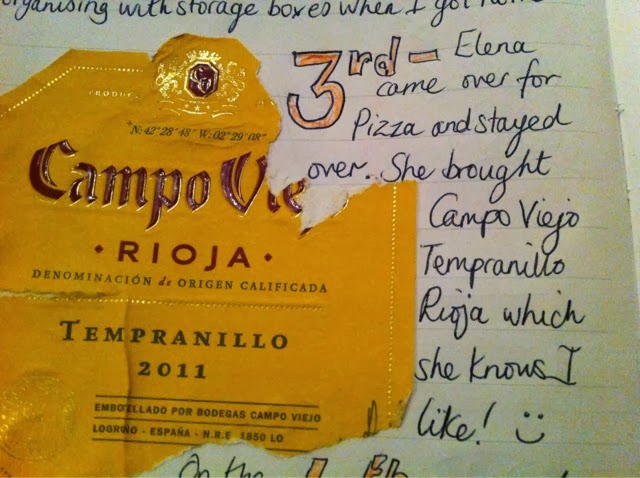 organising with storage boxes when I got
3rd - Elena
came over for
Pizza and stayed
over. She brought
Campo Viejo
Tempranillo
Rioja which
she knows I
like!
N: 42° 28' 48" W: 02° 29' 08"
Campo Vie
· RIOJA ·
DENOMINACIÓN de ORIGEN CALIFICADA
TEMPRANILLO
2011
EMBOTELLADO POR BODEGAS CAMPO VIEJO
LOGROÑO - ESPAÑA - N.R.E 1850 LO
On the